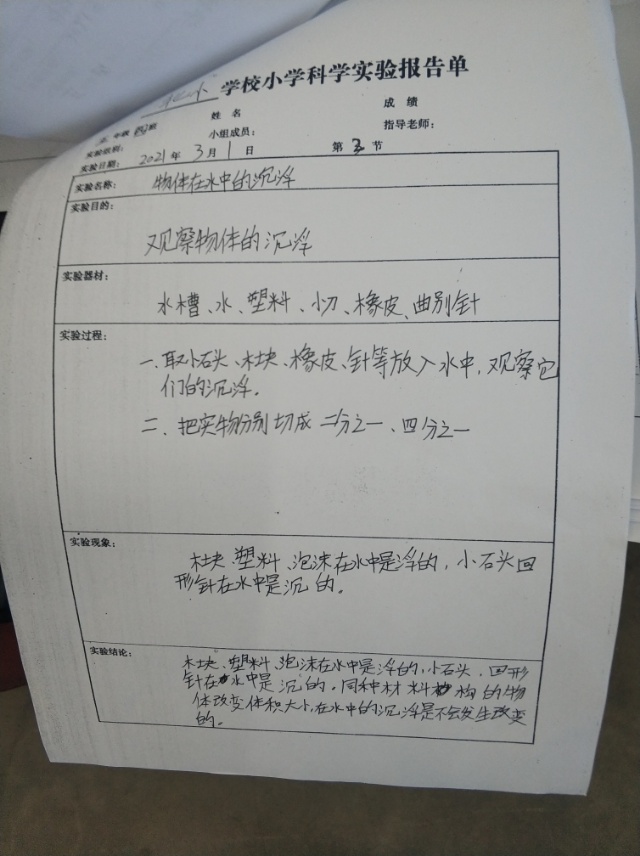 学校小学科学实验报告单
年级四班 姓名 成绩
实验组别: 小组成员: 指导老师:
实验日期: 2021年3月1日 第3节
实验名称: 物体在水中的沉浮
实验目的:
观察物体的沉浮
实验器材:
水槽、水、塑料、小刀、橡皮、曲别针
实验过程:
一、取小石头、木块、橡皮、针等放入水中,观察它
们的沉浮。
二、把实物分别切成二分之一、四分之一
实验现象:
木块、塑料、泡沫在水中是浮的,小石头回
形针在水中是沉的。
实验结论:
木块、塑料、泡沫在水中是浮的,小石头、回形
针在水中是沉的。同种材料构的物
体改变体积大小,在水中的沉浮是不会发生改变
的。